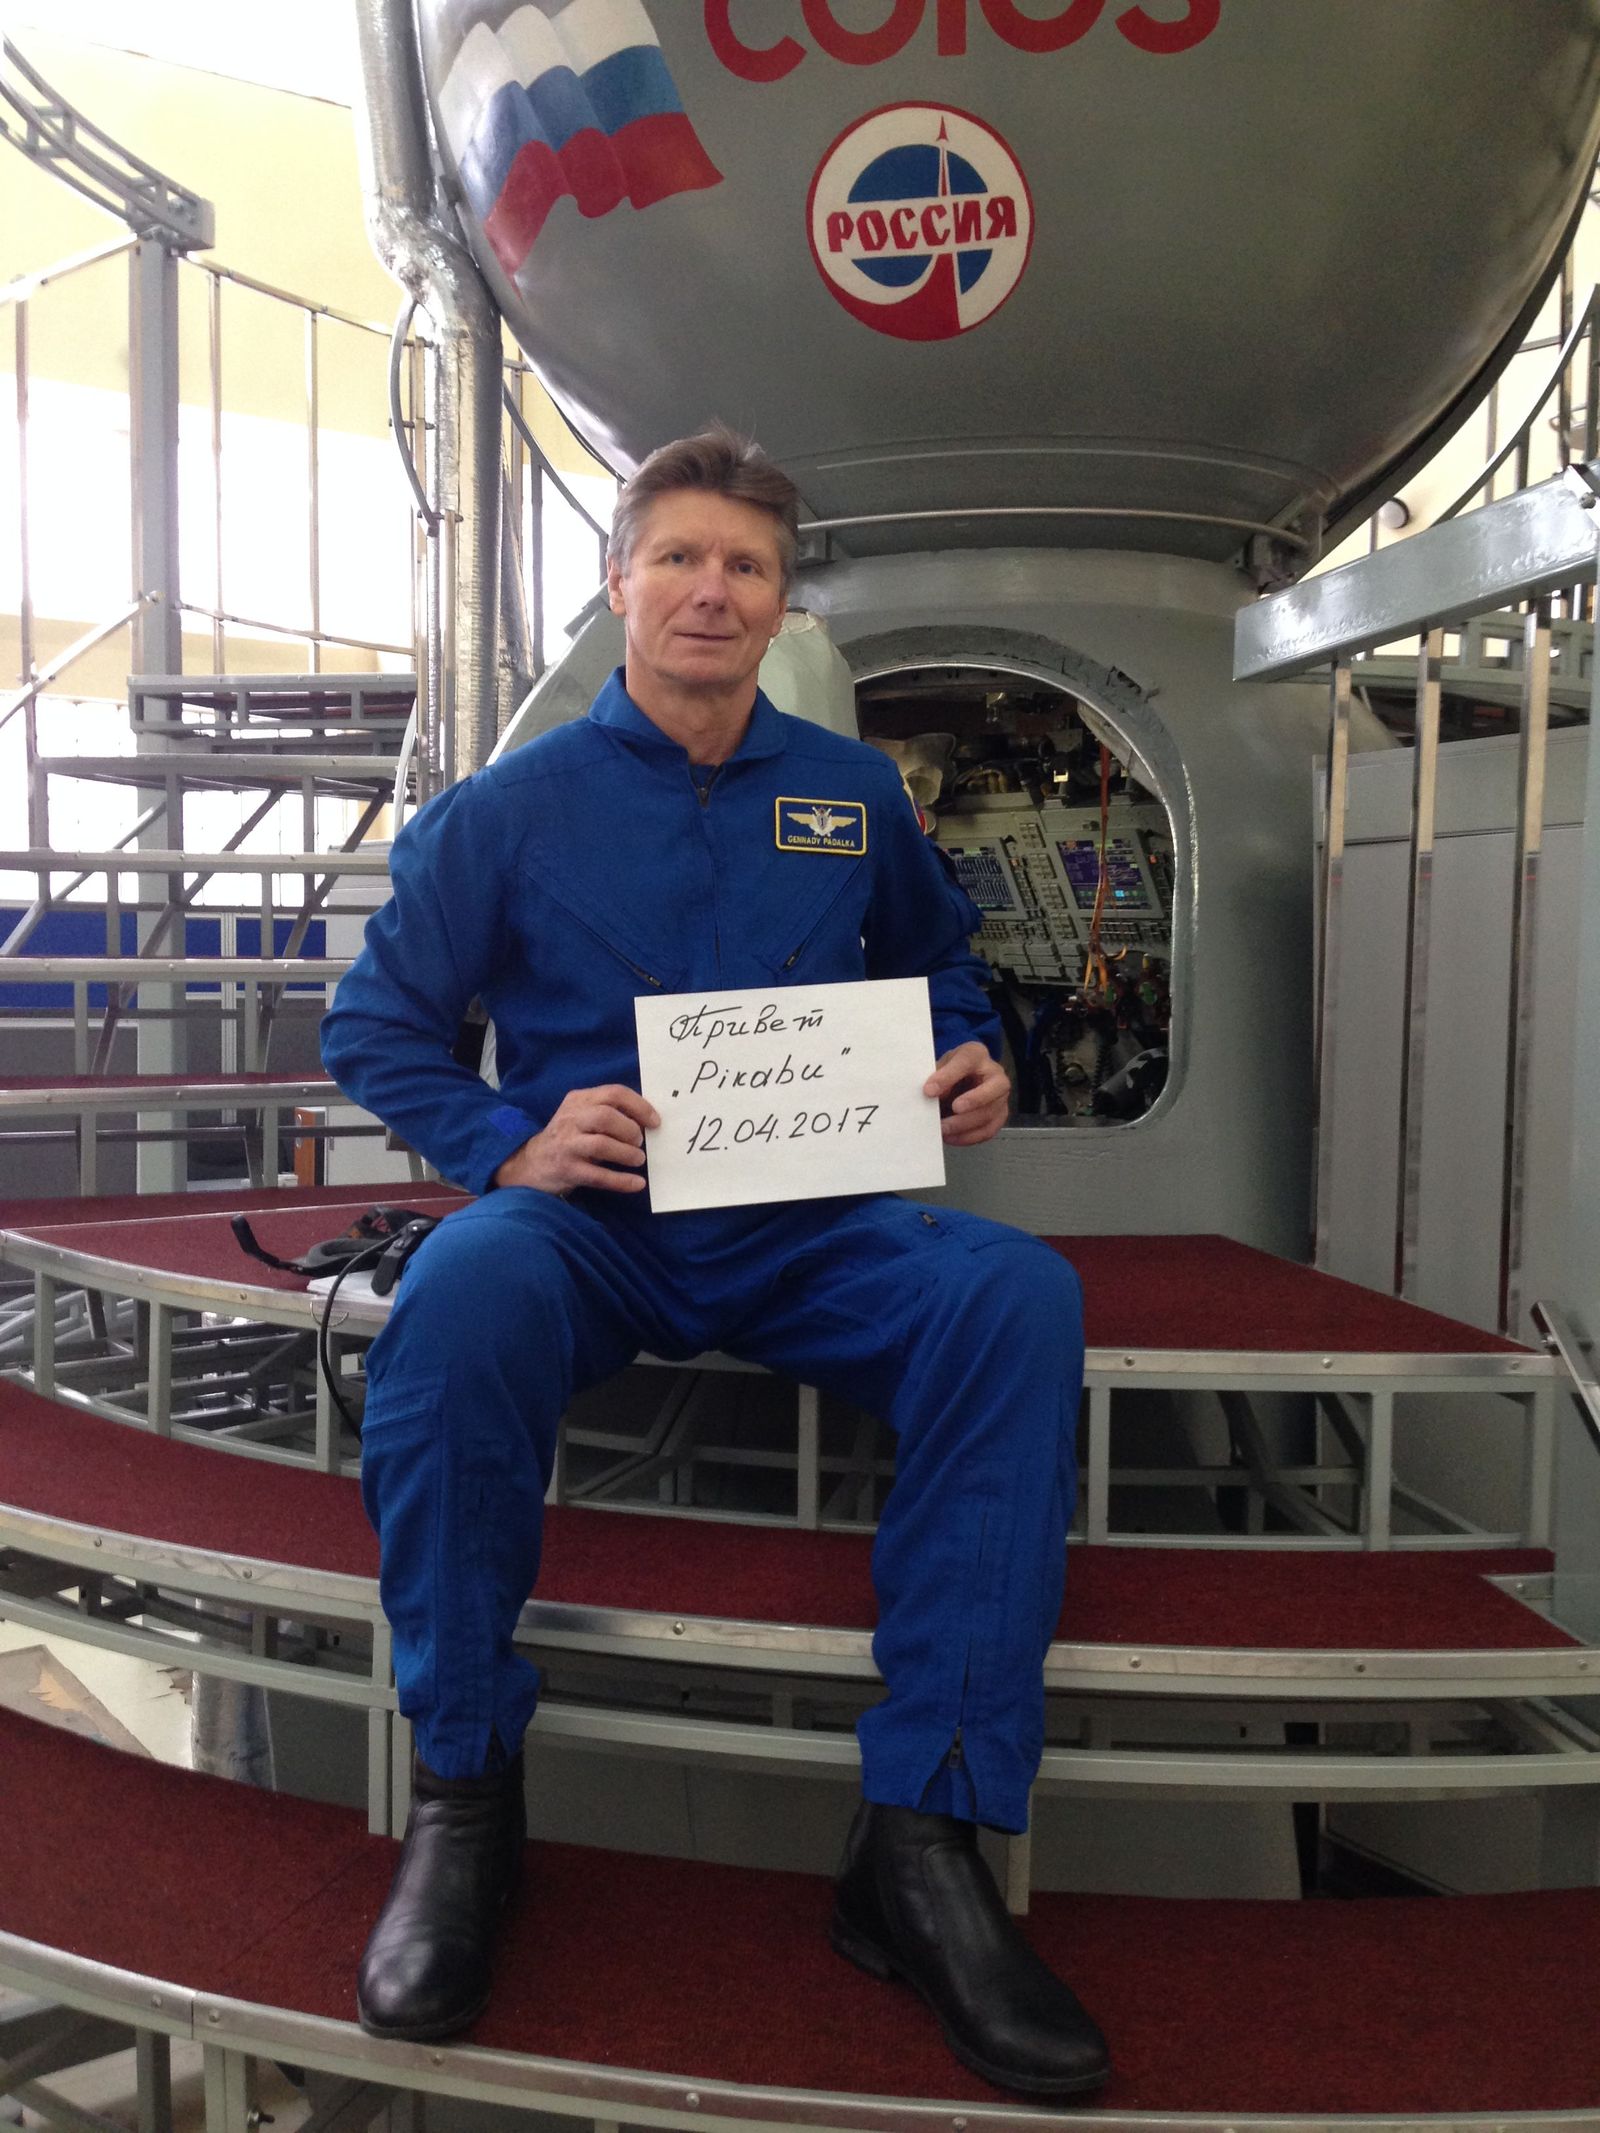 СОЮЗ
РОССИЯ
GENNADY PADALKA
Привет
„Pikabu”
12.04.2017